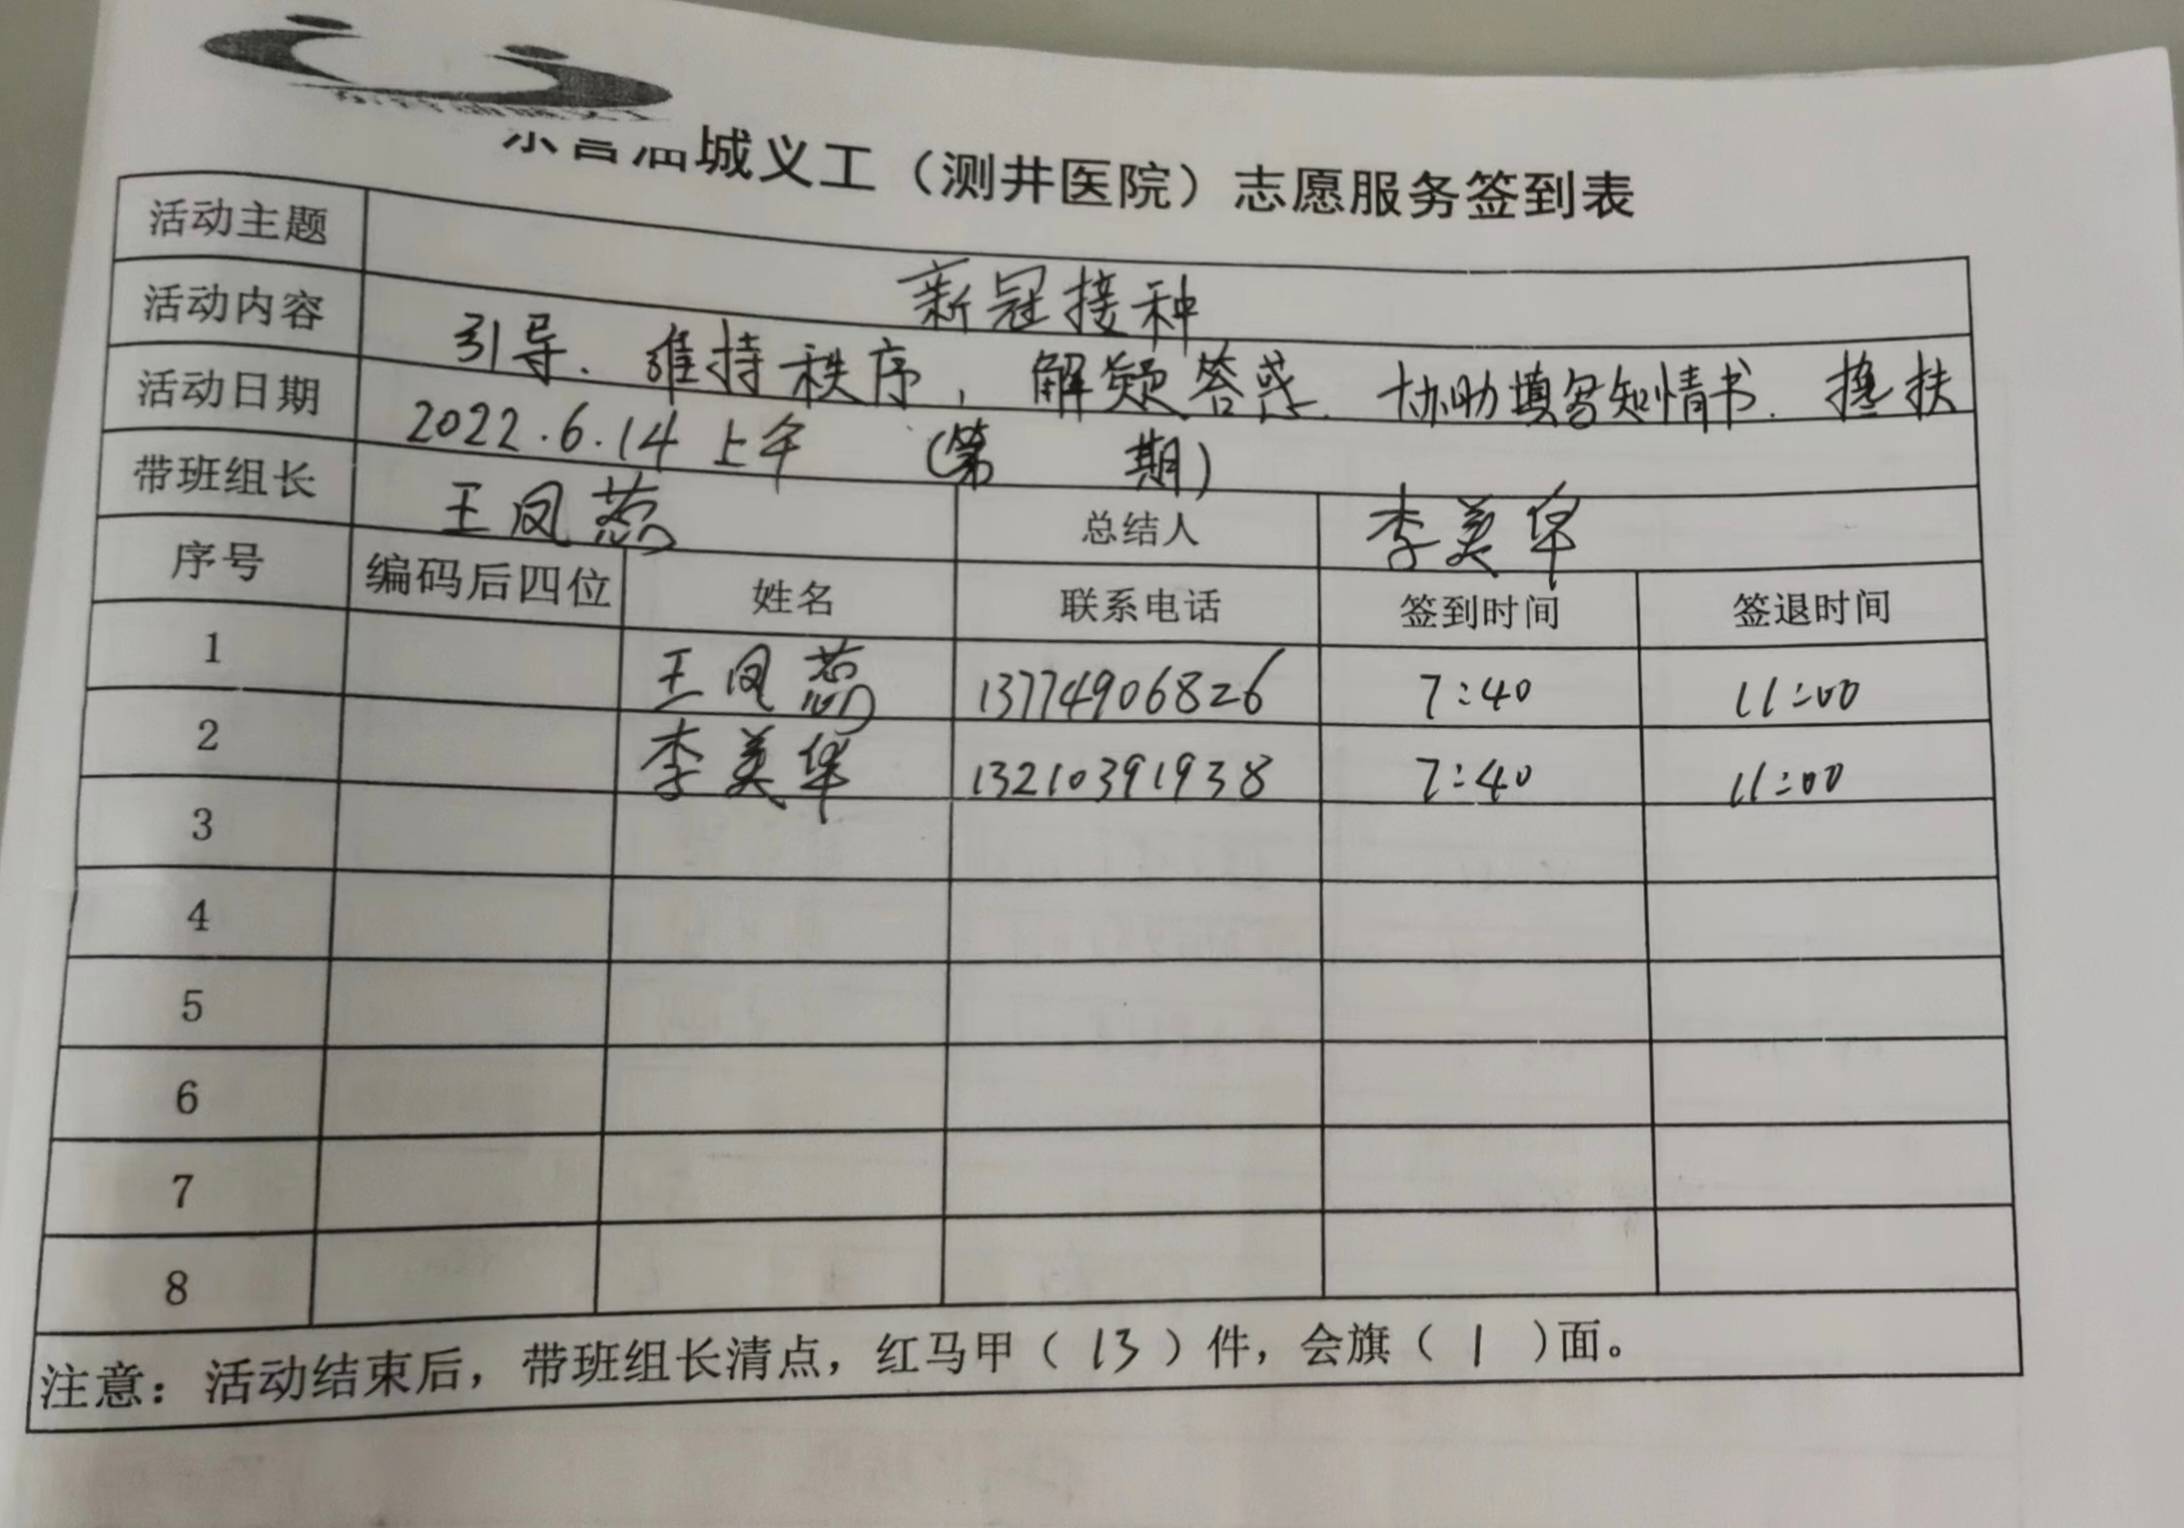 东营油城义工（测井医院）志愿服务签到表
活动主题 新冠接种
活动内容 引导、维持秩序，解疑答惑、协助填写知情书、搀扶
活动日期 2022.6.14 上午 （第 期）
带班组长 王凤蕊 总结人 李美华
序号 编码后四位 姓名 联系电话 签到时间 签退时间
1 王凤蕊 13774906826 7:40 11:00
2 李美华 13210391938 7:40 11:00
3
4
5
6
7
8
注意：活动结束后，带班组长清点，红马甲（13）件，会旗（1）面。